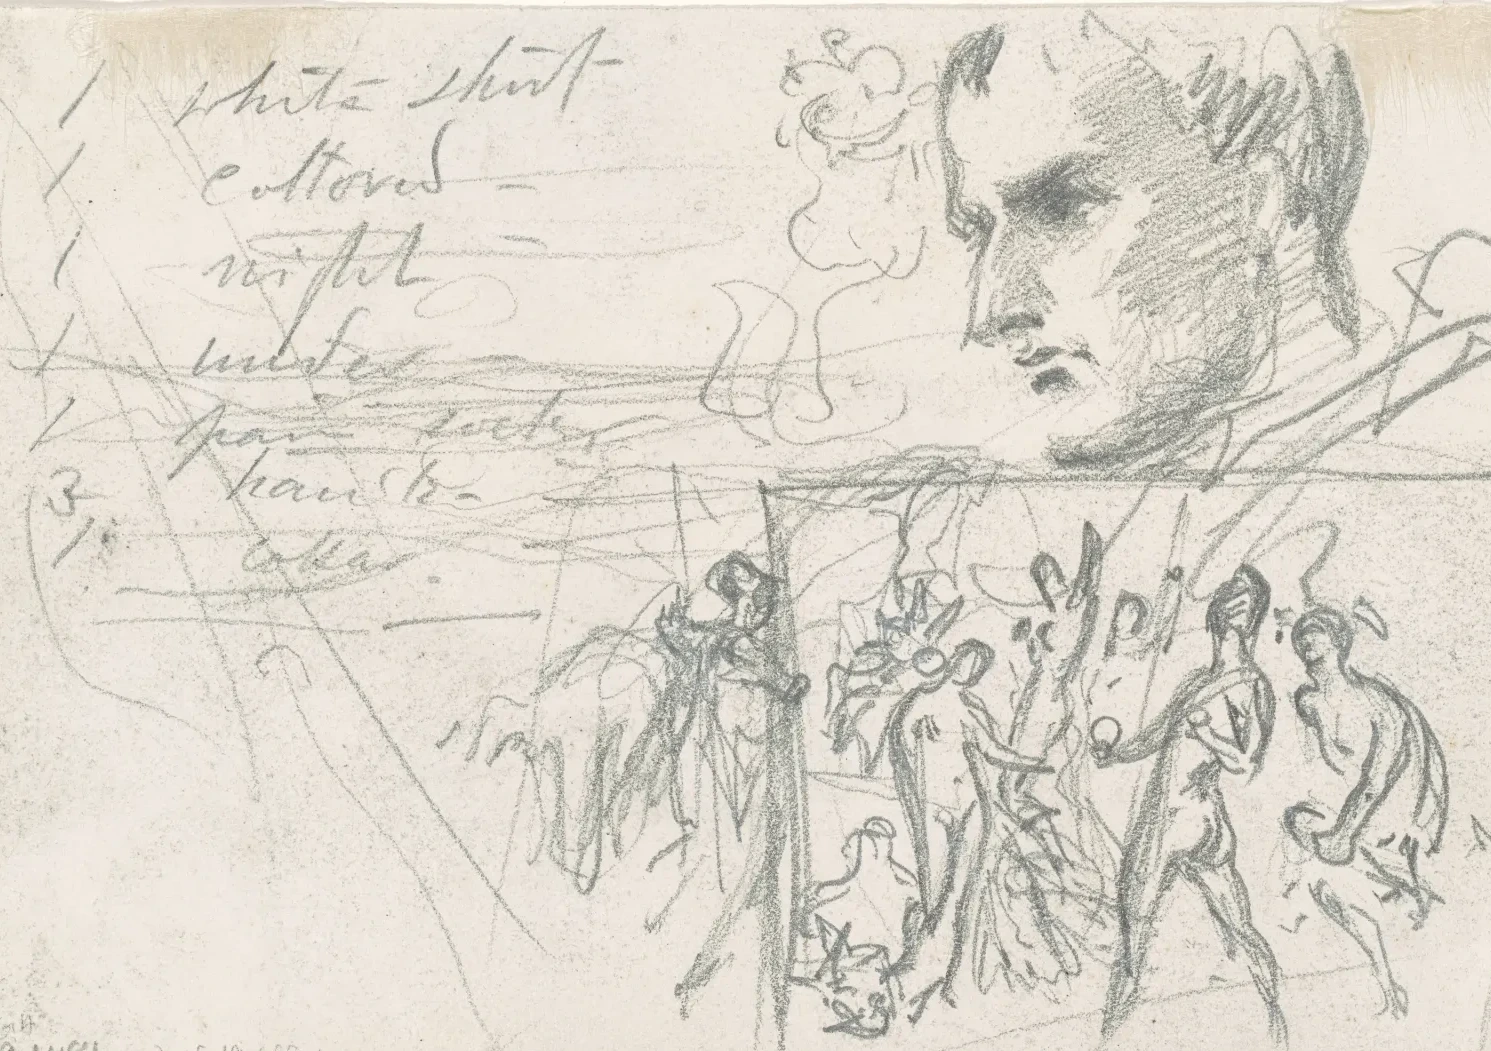 1 white shirt
1 collored -
1 night
1 
1 pair
3 hand k-
1 collar.